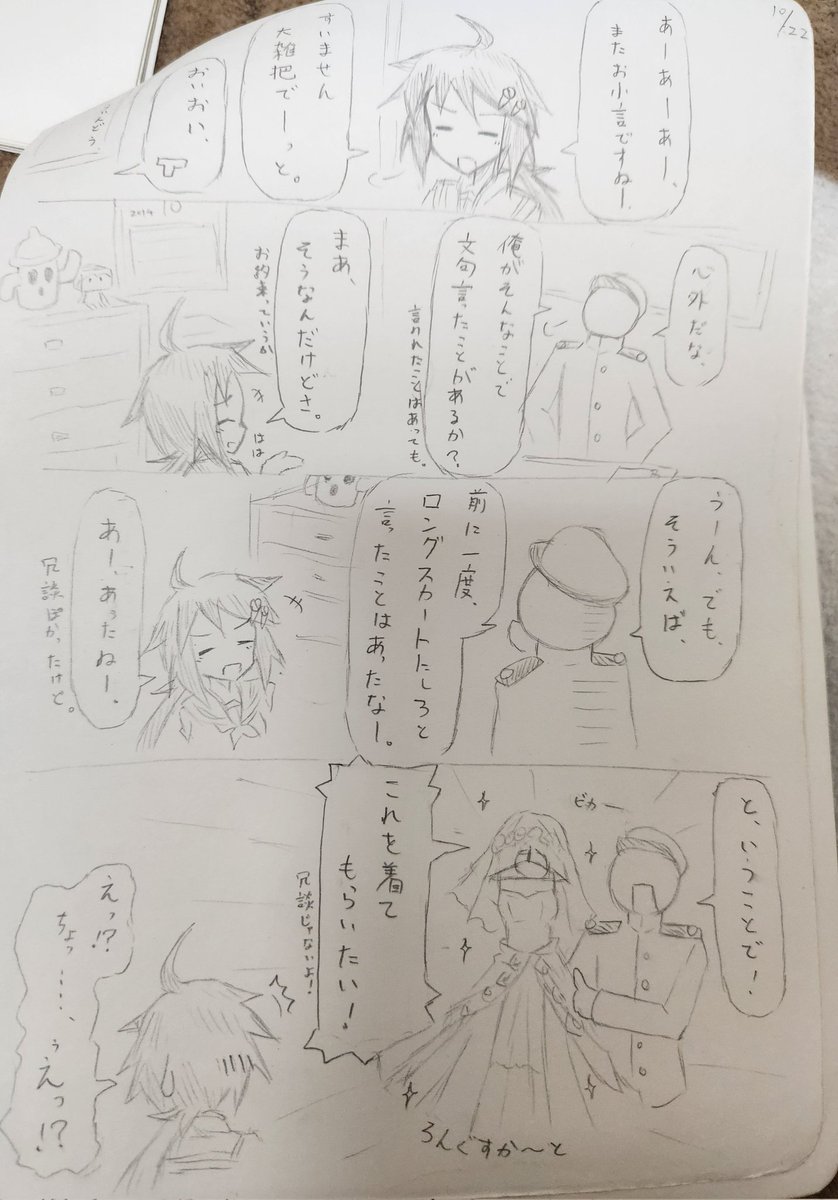 10/22
あーあーあー、
またお小言ですねー、
すいません
大雑把でーっと。
おいおい、
心外だな、
俺がそんなことで
文句言ったことがあるか？
言われたことはあっても。
まあ、
そうなんだけどさ。
お約束っていうか
はは
2019 10
うーん、でも、
そういえば、
前に一度、
ロングスカートにしろと
言ったことはあったなー。
あー、あったねー。
冗談ぽかったけど。
と、いうことで！
ビカー
これを着て
もらいたい！
冗談じゃないよ！
ろんぐすか～と
えっ!?
ちょっ……、
うえっ!?